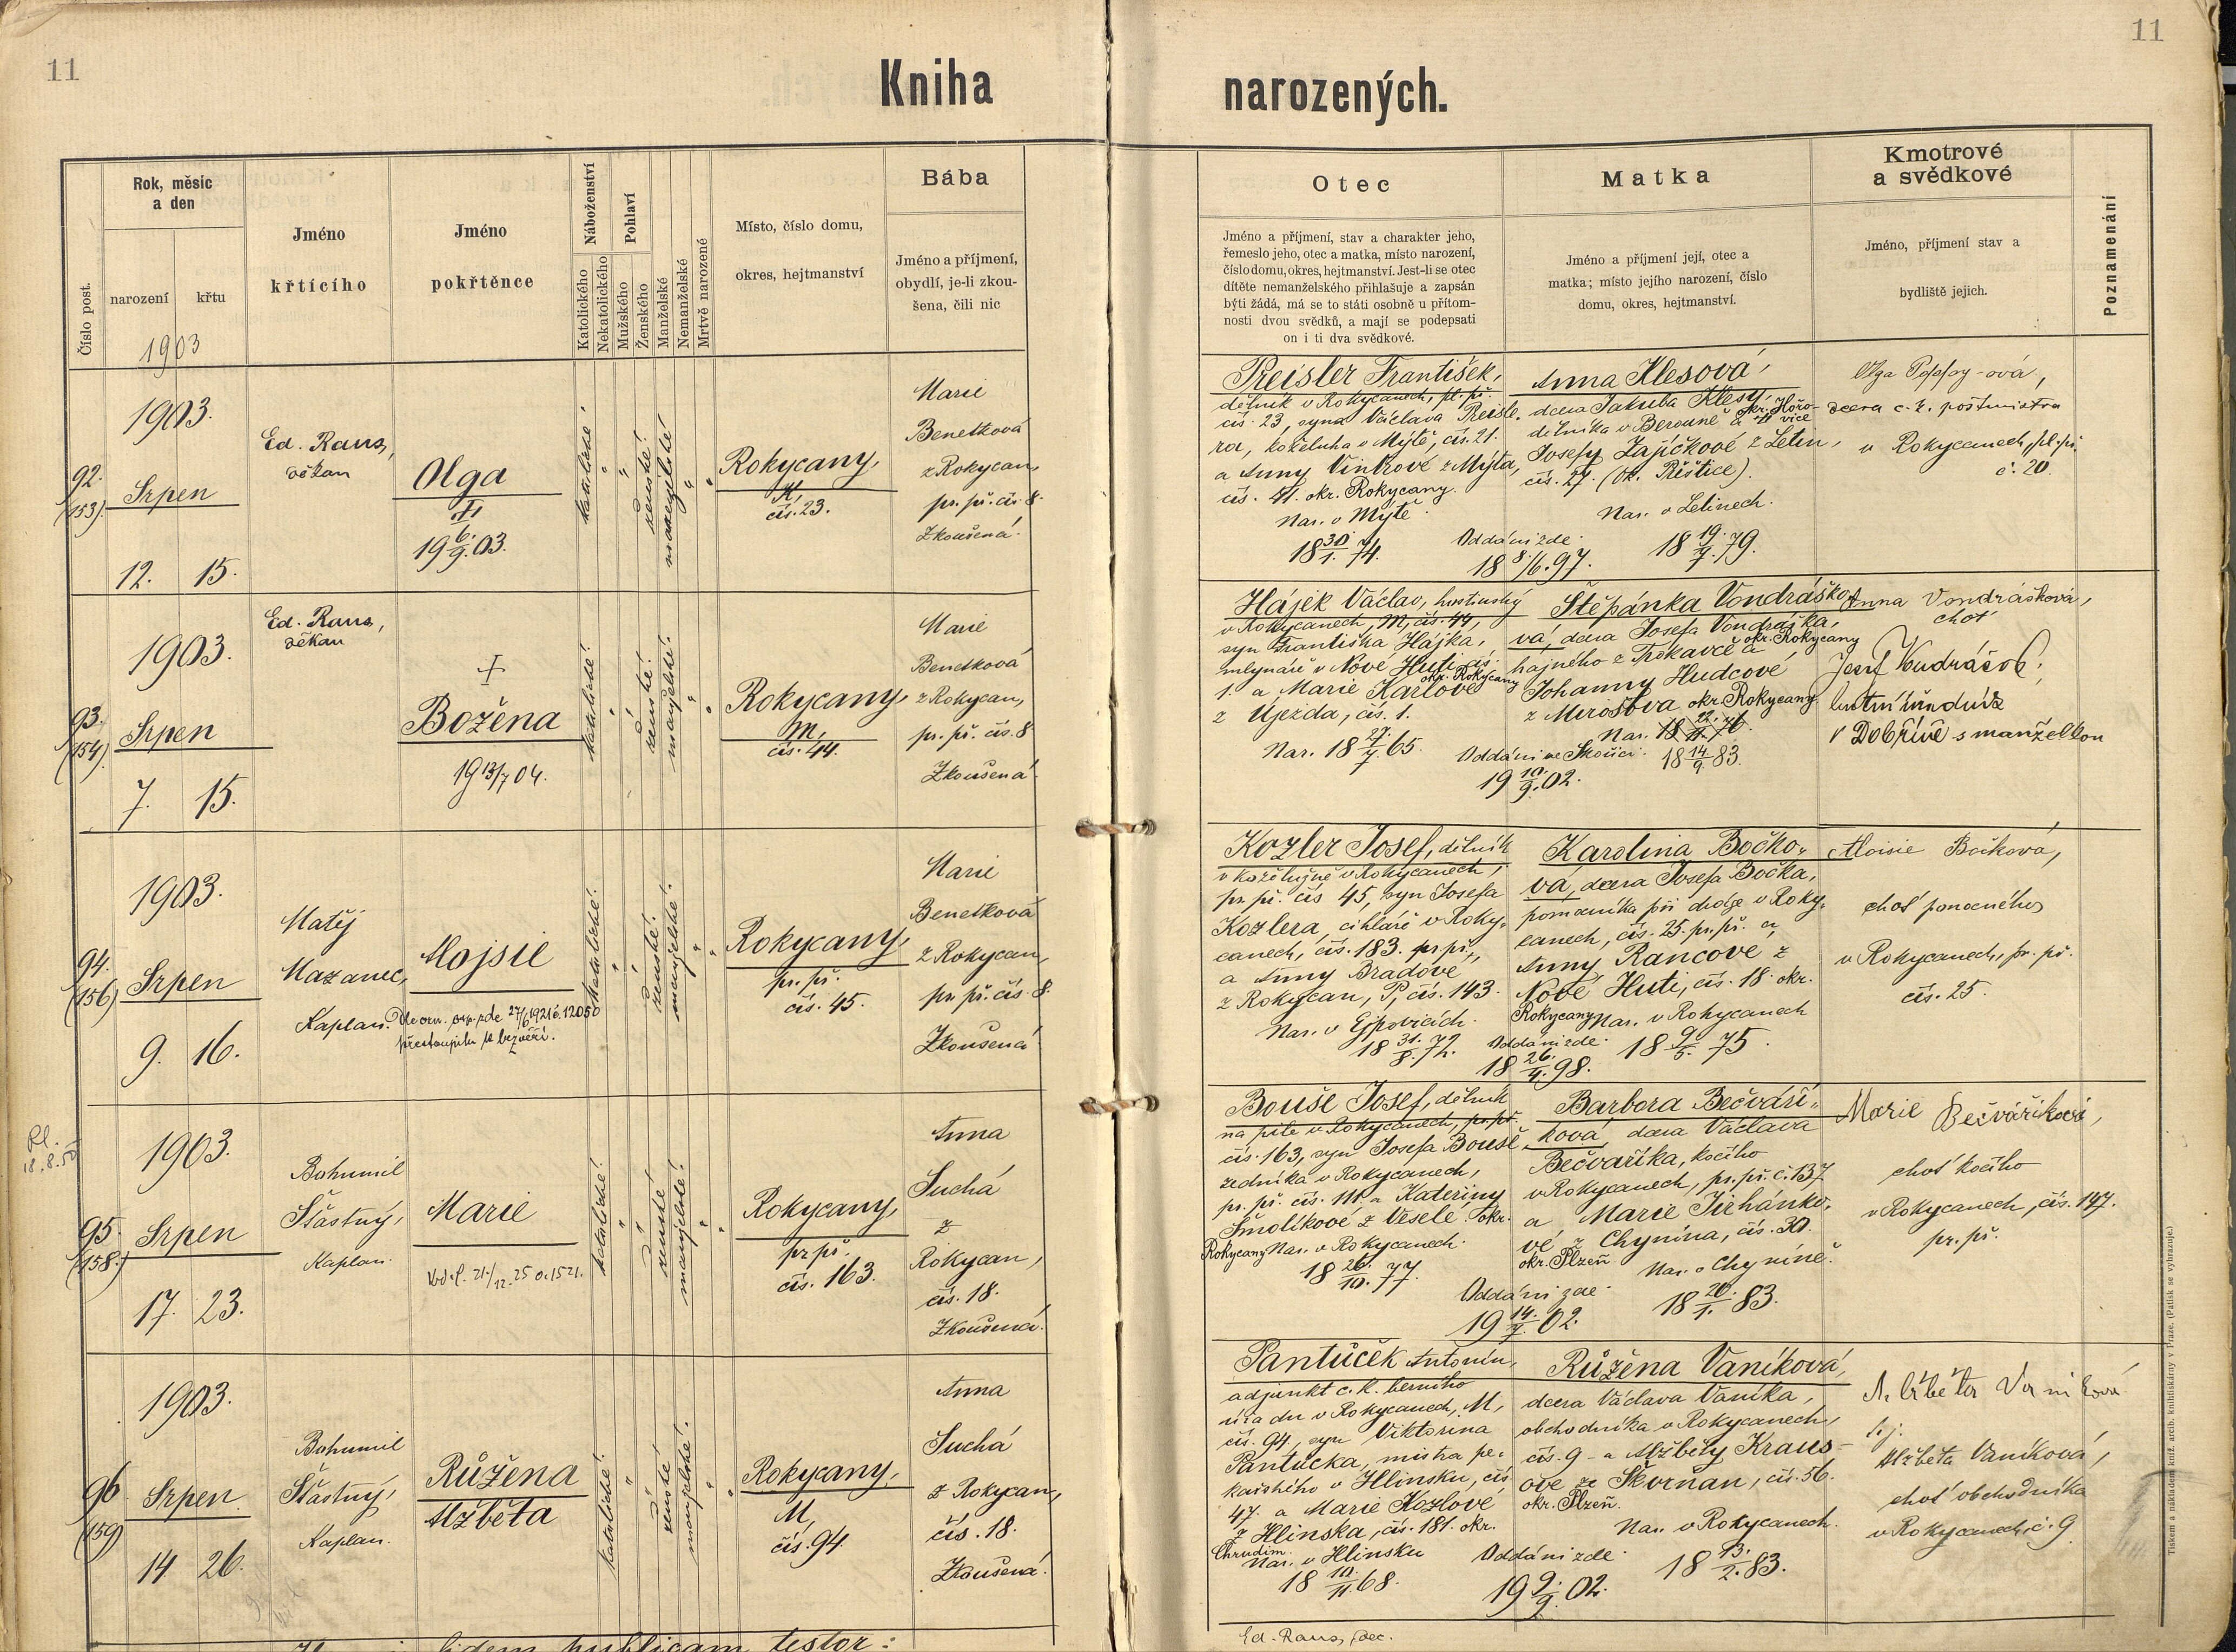 11
11
Kniha narozených.
Číslo post.
Rok, měsíc
a den
narození
křtu
1903
Jméno
křtícího
Jméno
pokřtěnce
Náboženství
Katolického
Nekatolického
Pohlaví
Mužského
Ženského
Manželské
Nemanželské
Mrtvě narozené
Místo, číslo domu,
okres, hejtmanství
Bába
Jméno a příjmení,
obydlí, je-li zkou-
šena, čili nic
Otec
Jméno a příjmení, stav a charakter jeho,
řemeslo jeho, otec a matka, místo narození,
číslo domu, okres, hejtmanství. Jest-li se otec
dítěte nemanželského přihlašuje a zapsán
býti žádá, má se to státi osobně u přítom-
nosti dvou svědků, a mají se podepsati
on i ti dva svědkové.
Matka
Jméno a příjmení její, otec a
matka; místo jejího narození, číslo
domu, okres, hejtmanství.
Kmotrové
a svědkové
Jméno, příjmení stav a
bydliště jejich.
Poznamenání
92.
(153)
1903.
Srpen
12. 15.
Ed. Raus,
děkan
Olga
19 6./9. 03.
katolické
ženské
manželské
Rokycany,
čís. 23.
Marie
Benetková
z Rokycan,
pr. př. čís. 8.
Zkoušená.
Preisler František,
dělník v Rokycanech, pl. př.
čís. 23, syna Václava Preisle-
ra, koželuha v Mýtě, čís. 21.
a Anny Vinkrové z Mýta,
čís. 41. okr. Rokycany.
Nar. v Mýtě
18 30./1. 74.
Anna Klesová,
dcera Jakuba Klesy,
dělníka v Berouně okr. Hořo-
vice
Josefy Zajíčkové z Letin,
čís. 27. (ok. Přeštice).
Nar. v Letinech.
18 19./7. 79.
Oddáni zde
18 8./6. 97.
Olga -ová,
dcera c. k. poštmistra
v Rokycanech, pl. př.
č. 20.
93.
(154)
1903.
Srpen
7. 15.
Ed. Raus,
děkan
+
Božena
19 13/7 04.
katolické
ženské
manželské
Rokycany,
M,
čís. 44.
Marie
Benetková
z Rokycan,
pr. př. čís. 8
Zkoušená.
Hájek Václav, hostinský
v Rokycanech, M, čís. 44,
syn Františka Hájka,
mlynáře v Nové Huti čís.
okr. Rokycany
1. a Marie Karlové
z Újezda, čís. 1.
Nar. 18 27./7. 65.
Štěpánka Vondráško-
vá, dcera Josefa Vondráška,
okr. Rokycany
hajného z Trokavce a
Johanny Hudcové
z Mirošova okr. Rokycany
Nar.
18 14/9. 83.
Oddáni ve Skořici
19 10./9. 02.
Anna Vondrášková,
choť
Josef Vondrášek,
v Dobřívě s manželkou
94.
(156)
1903.
Srpen
9. 16.
Matěj
Mazanec,
Kaplan.
Alojsie
27/6 1921 č. 12050
přestoupila k bezvěří.
katolické
ženské
manželské
Rokycany,
pr. př.
čís. 45.
Marie
Benetková
z Rokycan,
pr. př. čís. 8.
Zkoušená
Kozler Josef, dělník
v koželužně v Rokycanech,
pr. př. čís 45, syn Josefa
Kozlera, cihláře v Roky-
canech, čís. 183. pr. př.,
a Anny Bradové
z Rokycan, P, čís. 143.
Nar. v Ejpovicích.
18 31./8. 72.
Karolina Bočko-
vá, dcera Josefa Bočka,
pomocníka při dráze v Roky-
canech, čís. 25. pr. př. a
Anny Rancové z
Nové Huti, čís. 18. okr.
Rokycany Nar. v Rokycanech
18 9/5. 75.
Oddáni zde
18 26./4. 98.
Aloisie Bočková,
choť pomocného
v Rokycanech, pr. př.
čís. 25.
18.8.50
95.
(158.)
1903.
Srpen
17. 23.
Bohumil
Šťastný,
Kaplan.
Marie
21./12. 25 č. 1521.
katolické
ženské
manželské
Rokycany,
pr. př.
čís. 163.
Anna
Suchá
z
Rokycan,
čís. 18.
Zkoušená.
Bouše Josef, dělník
na pile v Rokycanech, pr. př.
čís. 163, syn Josefa Bouše
zedníka v Rokycanech,
pr. př. čís. 111. a Kateřiny
Šmolíkové z Veselé. okr.
Rokycany Nar. v Rokycanech.
18 26./10. 77.
Barbora Bečváří-
ková, dcera Václava
Bečvaříka, kočího
v Rokycanech, pr. př. č. 137.
a Marie Jirhánko-
vé z Chynína, čís. 30.
okr. Plzeň Nar. v Chyníně.
18 20./1. 83.
Oddáni zde
19 14./7. 02.
Marie Bečváříková,
choť kočího
v Rokycanech, čís. 147.
pr. př.
96
(159)
1903.
Srpen
14 26.
Bohumil
Šťastný,
Kaplan.
Růžena
Alžběta
katolické
ženské
manželské
Rokycany,
M,
čís. 94.
Anna
Suchá
z Rokycan,
čís. 18.
Zkoušená.
Pantůček Antonín,
adjunkt c. k. berního
úřadu v Rokycanech, M,
čís. 94, syn Viktorina
Pantůčka, mistra pe-
kařského v Hlinsku, čís
47. a Marie Kozlové
z Hlinska, čís. 181. okr.
Chrudim.
Nar. v Hlinsku
18 10./11. 68.
Růžena Vaníková,
dcera Václava Vaníka,
obchodníka v Rokycanech,
čís. 9 - a Alžběty Kraus-
ové ze Skvrňan, čís. 56.
okr. Plzeň.
Nar. v Rokycanech.
18 13./2. 83.
Oddáni zde
19 9./9. 02.
Alžběta Vaníková
Alžběta Vaníková,
choť obchodníka
v Rokycanech č. 9
fidem publicam testor:
Ed. Raus, dec.
Tiskem a nákladem kníž. arcib. knihtiskárny v Praze. (Patisk se vyhrazuje.)